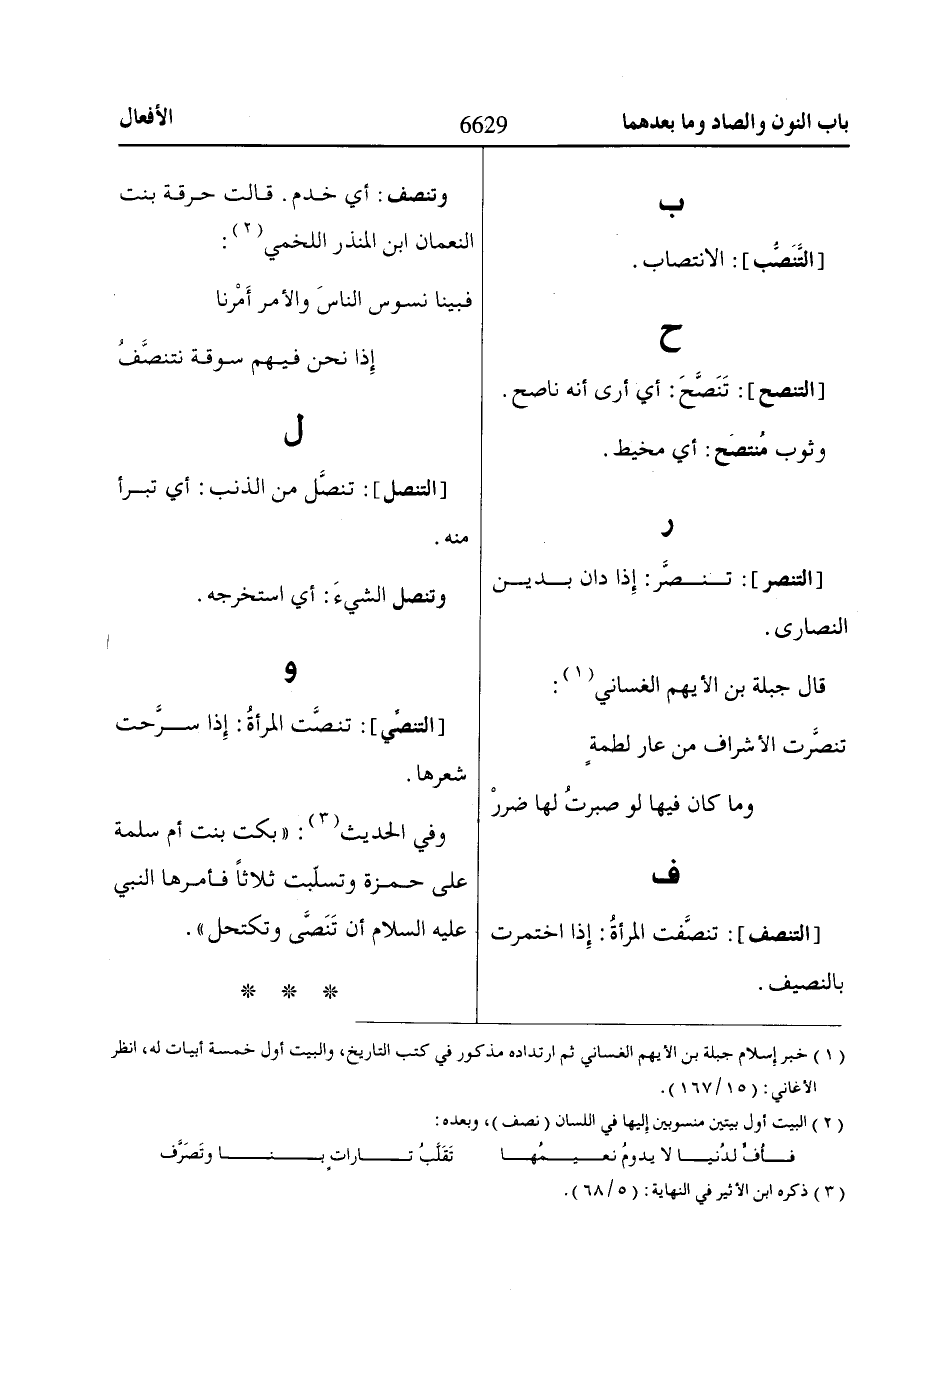 باب النون والصاد وما بعدهما
6629
الأفعال
ب
[التَّنَصُّب]: الانتصاب.
ح
[التنصح]: تَنَصَّحَ: أي أرى أنه ناصح.
وثوب مُنتصَح: أي مخيط.
ر
[التنصر]: تنصَّر: إذا دان بدين
النصارى.
قال جبلة بن الأيهم الغساني(١):
تنصَّرت الأشراف من عار لطمةٍ
وما كان فيها لو صبرتُ لها ضررْ
ف
[التنصف]: تنصَّفت المرأةُ: إذا اختمرت
بالنصيف.
وتنصف: أي خدم. قالت حرقة بنت
النعمان ابن المنذر اللخمي(٢):
فبينا نسوس الناسَ والأمر أَمْرنا
إذا نحن فيهم سوقة نتنصَّفُ
ل
[التنصل]: تنصَّل من الذنب: أي تبرأ
منه.
وتنصل الشيءَ: أي استخرجه.
و
[التنصِّي]: تنصَّت المرأةُ: إذا سرَّحت
شعرها.
وفي الحديث(٣): «بكت بنت أم سلمة
على حمزة وتسلّبت ثلاثاً فأمرها النبي
عليه السلام أن تَنَصَّى وتكتحل».
* * *
(١) خبر إسلام جبلة بن الأيهم الغساني ثم ارتداده مذكور في كتب التاريخ، والبيت أول خمسة أبيات له، انظر
الأغاني: (١٥/١٦٧).
(٢) البيت أول بيتين منسوبين إليها في اللسان (نصف)، وبعده:
فأفٍّ لدُنيا لا يدومُ نعيمُها تَقَلَّبُ تاراتٍ بنا وتَصَرَّف
(٣) ذكره ابن الأثير في النهاية: (٥/٦٨).